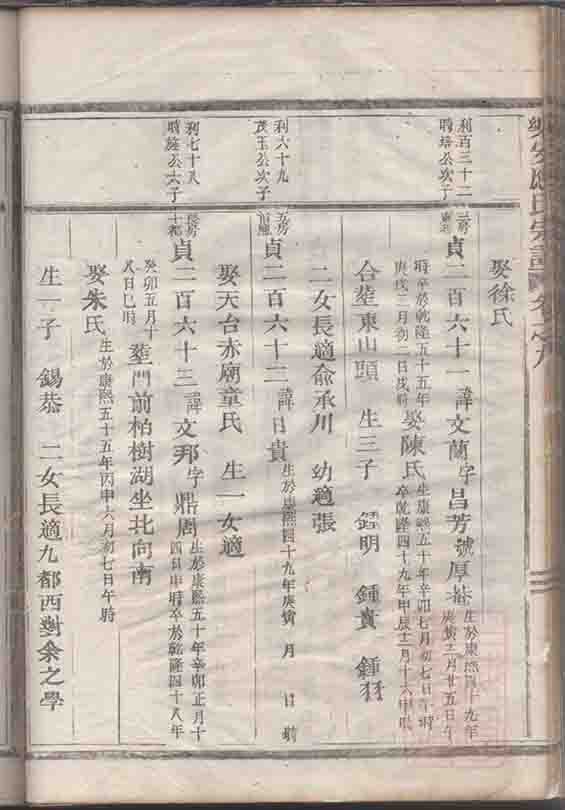 娶徐氏
利百三十二
時培公次子
貞二百六十一諱文蘭字昌芳號厚菴
生於康熙四十九年
庚寅十二月廿五日午
時卒於乾隆五十五年
庚戌二月初二日戌時
娶陳氏
生康熙五十年辛卯七月初七日午時
卒乾隆四十九年甲辰十二月十六申時
合塟東山頭 生三子 鍾明 鍾貴 鍾羽
二女長適俞承川 幼適張
利六十九
茂玉公次子
貞二百六十二諱日貴
生於康熙四十九年庚寅 月 日 時
娶天台赤廟童氏 生一女適
利七十八
時 公六子
貞二百六十三諱文邦字鼎周
生於康熙五十年辛卯正月十
四日申時卒於乾隆四十八年
癸卯五月十
八日巳時
塟門前柏樹湖坐北向南
娶朱氏
生於康熙五十五年丙申六月初七日午時
生一子 錫恭 二女長適九都西對余之學